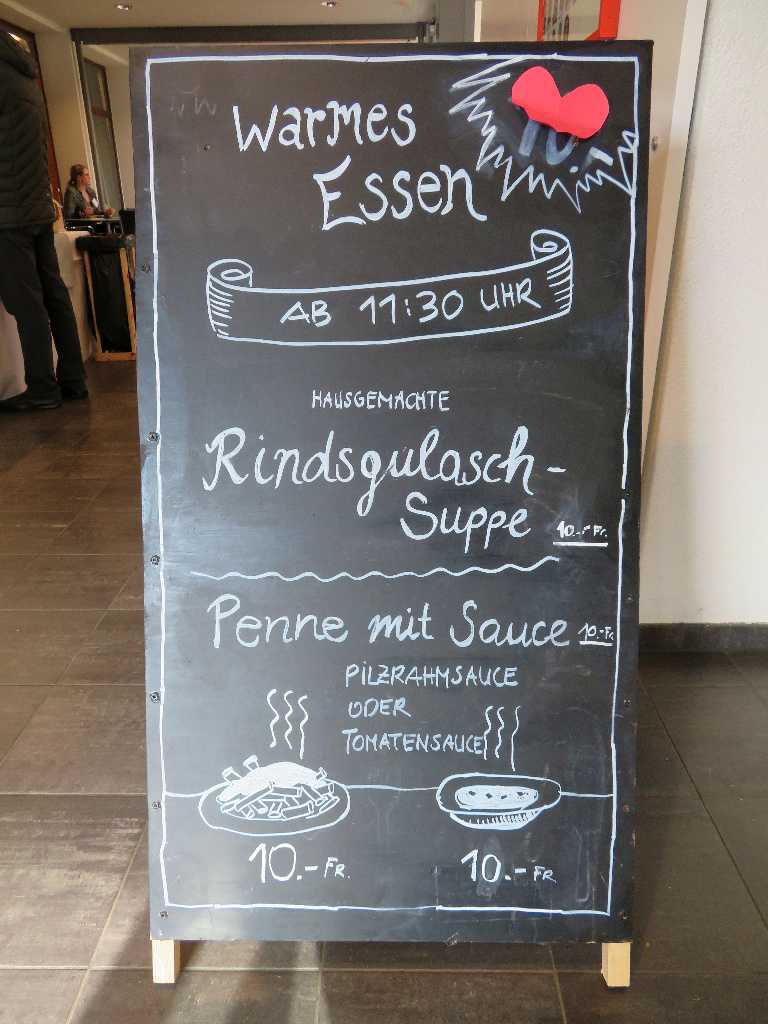 Warmes
Essen
AB 11:30 UHR
HAUSGEMACHTE
Rindsgulasch-
Suppe 10.-Fr.
Penne mit Sauce 10.-Fr.
PILZRAHMSAUCE
ODER
TOMATENSAUCE
10.-FR. 10.-FR